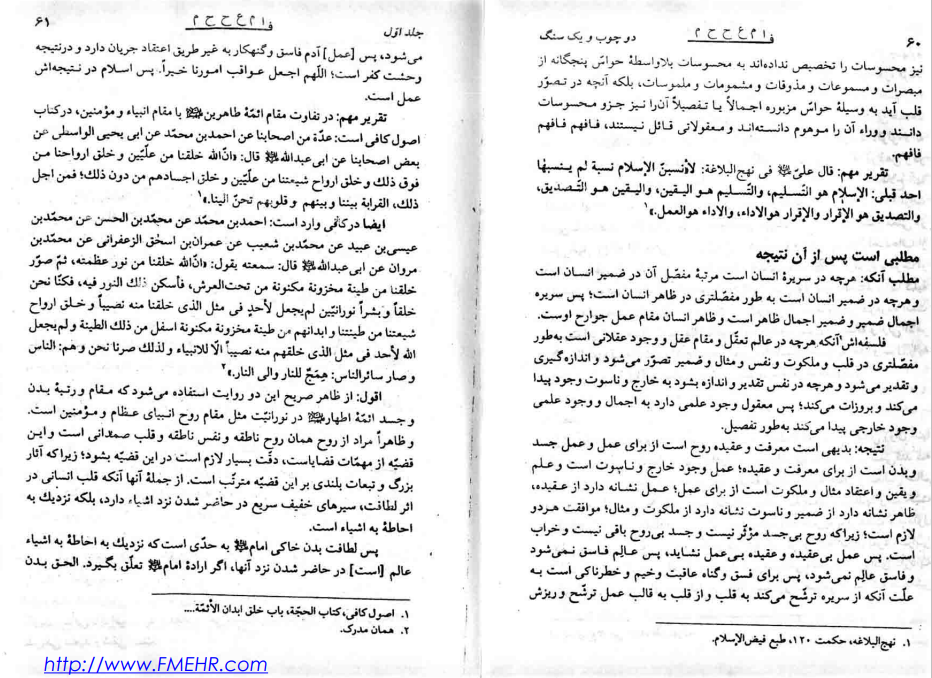 ۶۰
دو چوب و یک سنگ
نیز محسوسات را تخصیص نداده‌اند به محسوسات بلاواسطهٔ حواسّ پنجگانه از
مبصرات و مسموعات و مذوقات و مشمومات و ملموسات، بلکه آنچه در تصوّر
قلب آید به وسیلهٔ حواسّ مزبوره اجمالاً یا تفصیلاً آن‌را نیز جزو محسوسات
دانسند و وراء آن را موهوم دانسته‌اند و معقولاتی قائل نیستند، فافهم فافهم
فافهم.
تقریر مهم: قال علیّ ﷷ فی نهج‌البلاغة: لأنسبنّ الإسلام نسبة لم ینسبها
احد قبلی: الإسلام هو التّسلیم، والتّسلیم هو الیقین، والیقین هو التّصدیق،
والتصدیق هو الإقرار والإقرار هوالاداء، والاداء هوالعمل.»۱
مطلبی است پس از آن نتیجه
مطلب آنکه: هرچه در سریرهٔ انسان است مرتبهٔ مفصّل آن در ضمیر انسان است
و هرچه در ضمیر انسان است به طور مفصّلتری در ظاهر انسان است؛ پس سریره
اجمال ضمیر و ضمیر اجمال ظاهر است و ظاهر انسان مقام عمل جوارح اوست.
فلسفه‌اش آنکه هرچه در عالم تعقّل و مقام عقل و وجود عقلانی است به‌طور
مفصّلتری در قلب و ملکوت و نفس و مثال و ضمیر تصوّر می‌شود و اندازه‌گیری
و تقدیر می‌شود و هرچه در نفس تقدیر و اندازه بشود به خارج و ناسوت وجود پیدا
می‌کند و بروزات می‌کند؛ پس معقول وجود علمی دارد به اجمال و وجود علمی
وجود خارجی پیدا می‌کند به‌طور تفصیل.
نتیجه: بدیهی است معرفت و عقیده روح است از برای عمل و عمل جسد
و بدن است از برای معرفت و عقیده؛ عمل وجود خارج و ناسوت است و علم
و یقین و اعتقاد مثال و ملکوت است از برای عمل؛ عمل نشانه دارد از عقیده،
ظاهر نشانه دارد از ضمیر و ناسوت نشانه دارد از ملکوت و مثال؛ موافقت هردو
لازم است؛ زیراکه روح بی‌جسد مؤثّر نیست و جسد بی‌روح باقی نیست و خراب
است. پس عمل بی‌عقیده و عقیده بی‌عمل نشاید، پس عالِم فاسق نمی‌شود
و فاسق عالِم نمی‌شود، پس برای فسق و گناه عاقبت وخیم و خطرناکی است به
علّت آنکه از سریره ترشّح می‌کند به قلب و از قلب به قالب عمل ترشّح و ریزش
۱. نهج‌البلاغه، حکمت ۱۲۰، طبع فیض‌الإسلام.
جلد اوّل
۶۱
می‌شود، پس [عمل] آدم فاسق و گنهکار به غیر طریق اعتقاد جریان دارد و درنتیجه
وحشت کفر است؛ اللّهم اجعل عواقب امورنا خیراً. پس اسلام در نتیجه‌اش
عمل است.
تقریر مهم: در تفاوت مقام ائمّهٔ طاهرین ﷷ با مقام انبیاء و مؤمنین، درکتاب
اصول کافی است: عدّة من اصحابنا عن احمدبن محمّد عن ابی یحیی الواسطی عن
بعض اصحابنا عن ابی‌عبدالله ﷷ قال: «انّ‌الله خلقنا من علّیّین و خلق ارواحنا من
فوق ذلک و خلق ارواح شیعتنا من علّیّین و خلق اجسادهم من دون ذلک؛ فمن اجل
ذلک، القرابة بیننا و بینهم و قلوبهم تحنّ الینا.»۱
ایضا در کافی وارد است: احمدبن محمّد عن محمّدبن الحسن عن محمّدبن
عیسی‌بن عبید عن محمّدبن شعیب عن عمران‌بن اسحٰق الزعفرانی عن محمّدبن
مروان عن ابی‌عبدالله ﷷ قال: سمعته یقول: «انّ‌الله خلقنا من نور عظمته، ثمّ صوّر
خلقنا من طینة مخزونة مکنونة من تحت‌العرش، فأسکن ذلک النور فیه، فکنّا نحن
خلقاً و بشراً نورانیّین لم‌یجعل لأحدٍ فی مثل الذی خلقنا منه نصیباً و خلق ارواح
شیعتنا من طینتنا و ابدانهم من طینة مخزونة مکنونة اسفل من ذلک الطینة و لم‌یجعل
الله لأحد فی مثل الذی خلقهم منه نصیباً الّا للانبیاء و لذلک صرنا نحن و هم: الناس
و صار سائرالناس: هِمَجٌ للنار والی النار.»۲
اقول: از ظاهر صریح این دو روایت استفاده می‌شود که مقام و رتبهٔ بدن
و جسد ائمّهٔ اطهار ﷷ در نورانیّت مثل مقام روح انبیای عظام و مؤمنین است.
و ظاهراً مراد از روح همان روح ناطقه و نفس ناطقه و قلب صمدانی است و این
قضیّه از مهمّات قضایاست، دقّت بسیار لازم است در این قضیّه بشود؛ زیراکه آثار
بزرگ و تبعات بلندی بر این قضیّه مترتّب است. از جملهٔ آنها آنکه قلب انسانی در
اثر لطافت، سیرهای خفیف سریع در حاضر شدن نزد اشیاء دارد، بلکه نزدیک به
احاطهٔ به اشیاء است.
پس لطافت بدن خاکی امام ﷷ به حدّی است که نزدیك به احاطهٔ به اشیاء
عالم [است] در حاضر شدن نزد آنها، اگر ارادهٔ امام ﷷ تعلّق بگیرد. الحق بدن
۱. اصول کافی، کتاب الحجّة، باب خلق ابدان الأئمّة....
۲. همان مدرک.
http://www.FMEHR.com